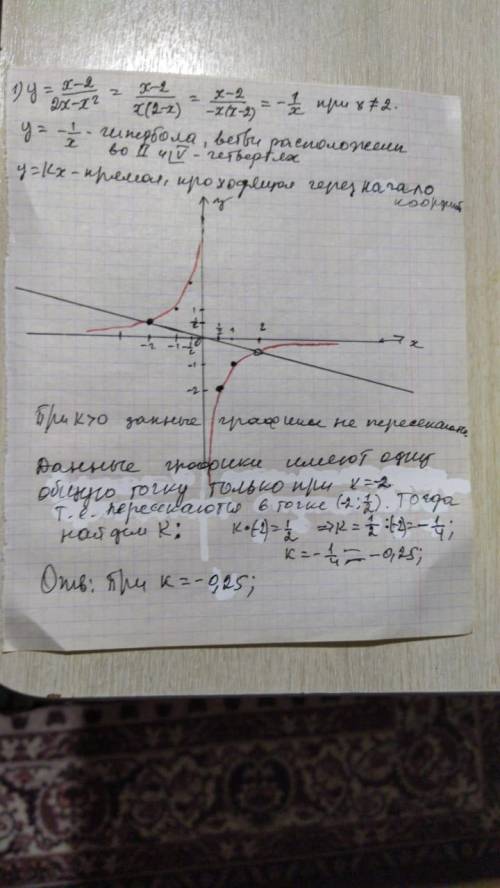 1) y = x-2 / 2x-x² = x-2 / x(2-x) = x-2 / -x(x-2) = -1/x при x≠2.
y = -1/x - гипербола, ветви расположены
во II и IV - четвертях
y=kx - прямая, проходящая через начало
координ
y
-2 -1 -1/2 0 1/2 1 2 x
1/2
-1
-2
При k>0 данные графики не пересекаются.
Данные графики имеют одну
общую точку только при x=-2
т.е. пересекаются в точке (-2; 1/2). Тогда
найдем k: k·(-2)=1/2 ⇒ k=1/2:(-2)=-1/4;
k=-1/4=-0,25;
Отв: При k=-0,25;